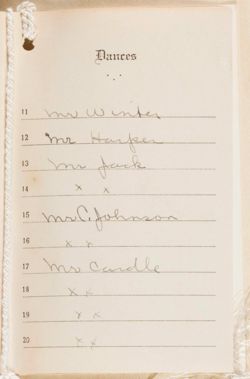 Dances
11 Mr Winter
12 Mr Harper
13 Mr Jack
14 x x
15 Mr. C. Johnson
16 x x
17 Mr Cardle
18 x x
19 x x
20 x x